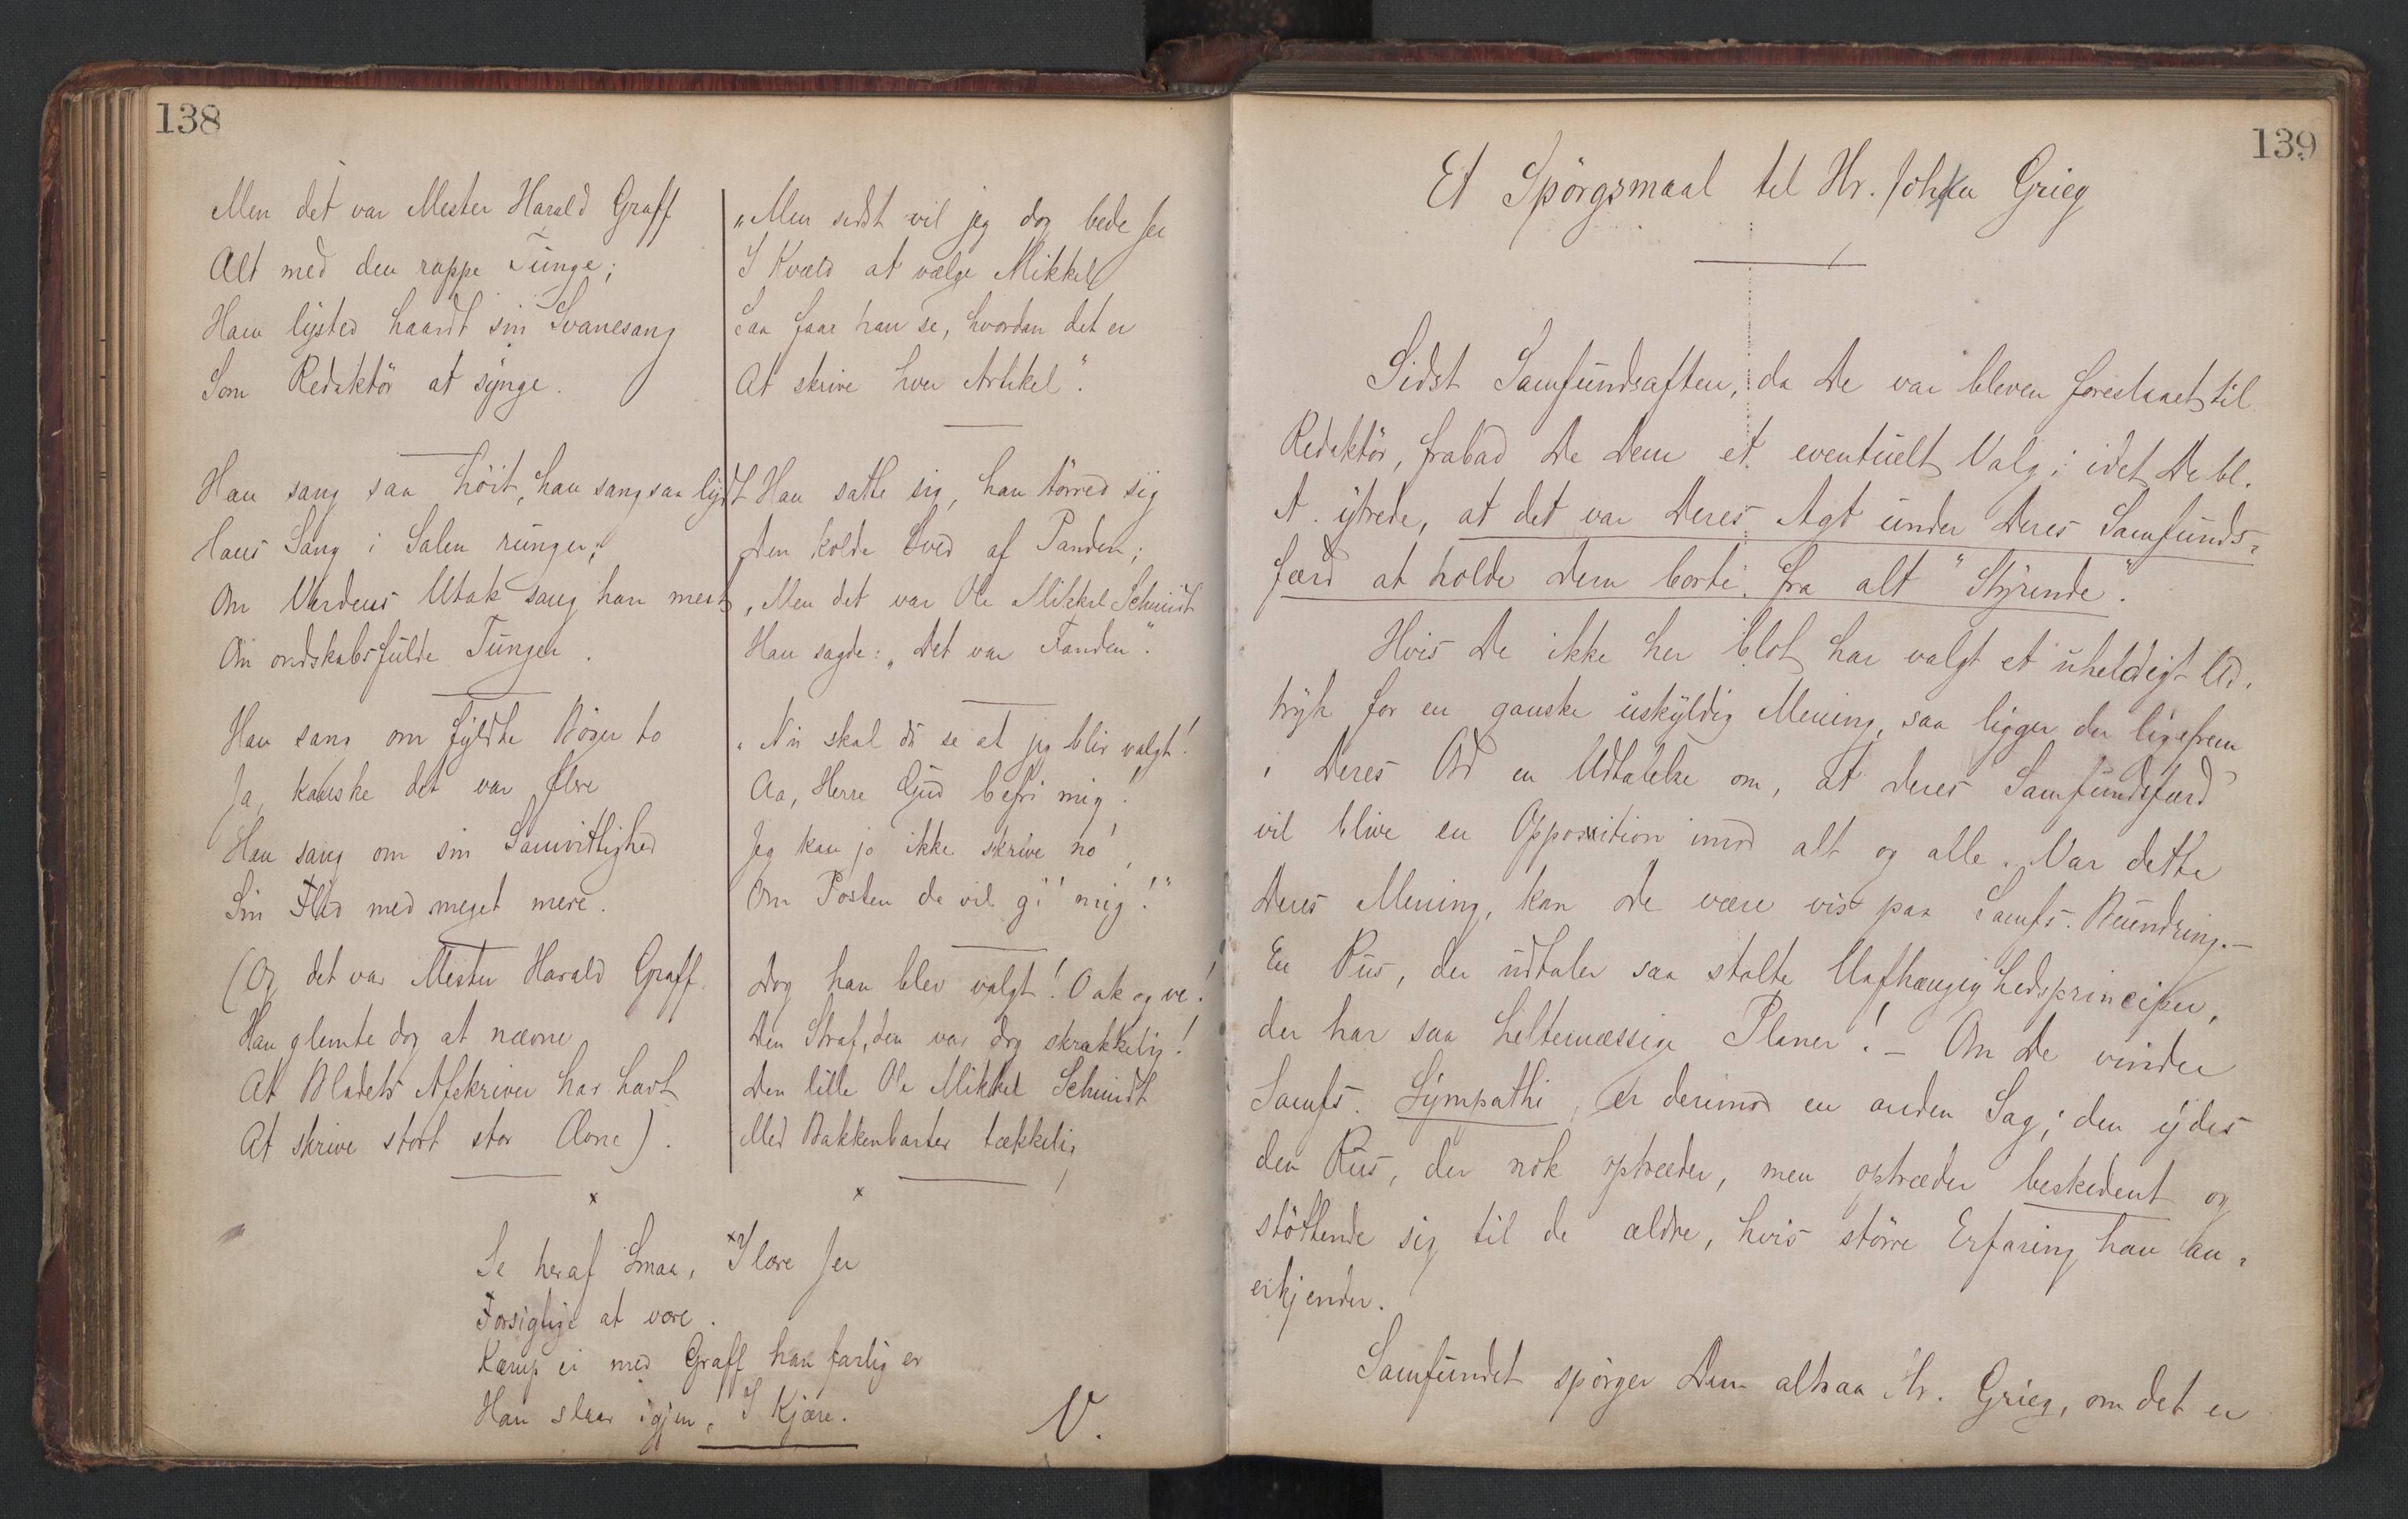 138
Men det var Mester Harald Graff
Alt med den rappe Tunge;
Ham lysted haardt sin Svanesang
Som Redaktör at synge.
Han sang saa höit, han sang saa lydt
Hans Sang i Salen runger;
Om Verdens Utak sang han mest
Om ondskabsfulde Tunger.
Han sang om fyldte Böger to
Ja, kanske det var flere
Han sang om sin Samvittighed
Sin Flid med meget mere.
(Og det var Mester Harald Graff.
Han glemte dog at nævne
At Bladets Afskriver har havt
At skrive stort stor Ævne).
„Men sidst vil jeg dog bede Jer
I Kvæld at vælge Mikkel
Saa faar han se, hvordan det er
At skrive hver Artikel".
Han satte sig, han törred sig
Den kolde Sved af Panden;
„Men det var Ole Mikkel Schmidt
Han sagde: „Det var Fanden".
„Nu skal du se at jeg blir valgt!
Aa, Herre Gud befri mig!
Jeg kan jo ikke skrive no',
Om Posten de vil gi' mig!"
Dog han blev valgt! O ak og ve!
Den Straf, den var dog skrækkelig!
Den lille Ole Mikkel Schmidt
Med Bakkenbarter tækkelig
Se heraf Smaa, I lære Jer
Forsiglige at være.
Kæmp ei med Graff han farlig er
Han slaar igjen, I Kjære.
V.
139
Et Spörgsmaal til Hr. Joh Grieg
Sidst Samfundsaften, da De var bleven foreslaaet til
Redaktör, frabad De Dem et eventuelt Valg; idet De bl.
A. ytrede, at det var Deres Agt under Deres Samfunds-
færd at holde Dem borte fra alt "Styrende".
Hvis De ikke her blot har valgt et uheldigt Ud-
tryk for en ganske uskyldig Mening, saa ligger der ligefrem
i Deres Ord en Udtalelse om, at Deres Samfundsfærd
vil blive en Opposition imod alt og alle. Var dette
Deres Mening, kan De være vis paa Samfs. Beundring. –
En Rus, der udtaler saa stolte Uafhængighedsprinciper,
der har saa heltemæssige Planer! – Om De vinder
Samfs. Sympathi, er derimod en anden Sag; den ydes
den Rus, der nok optræder, men optræder beskedent og
stöttende sig til de ældre, hvis större Erfaring han an-
erkjender.
Samfundet spörger Dem altsaa Hr. Grieg, om det er